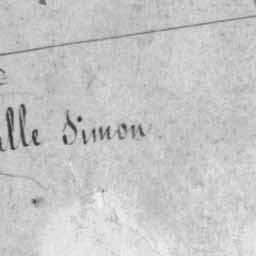 alle Simon